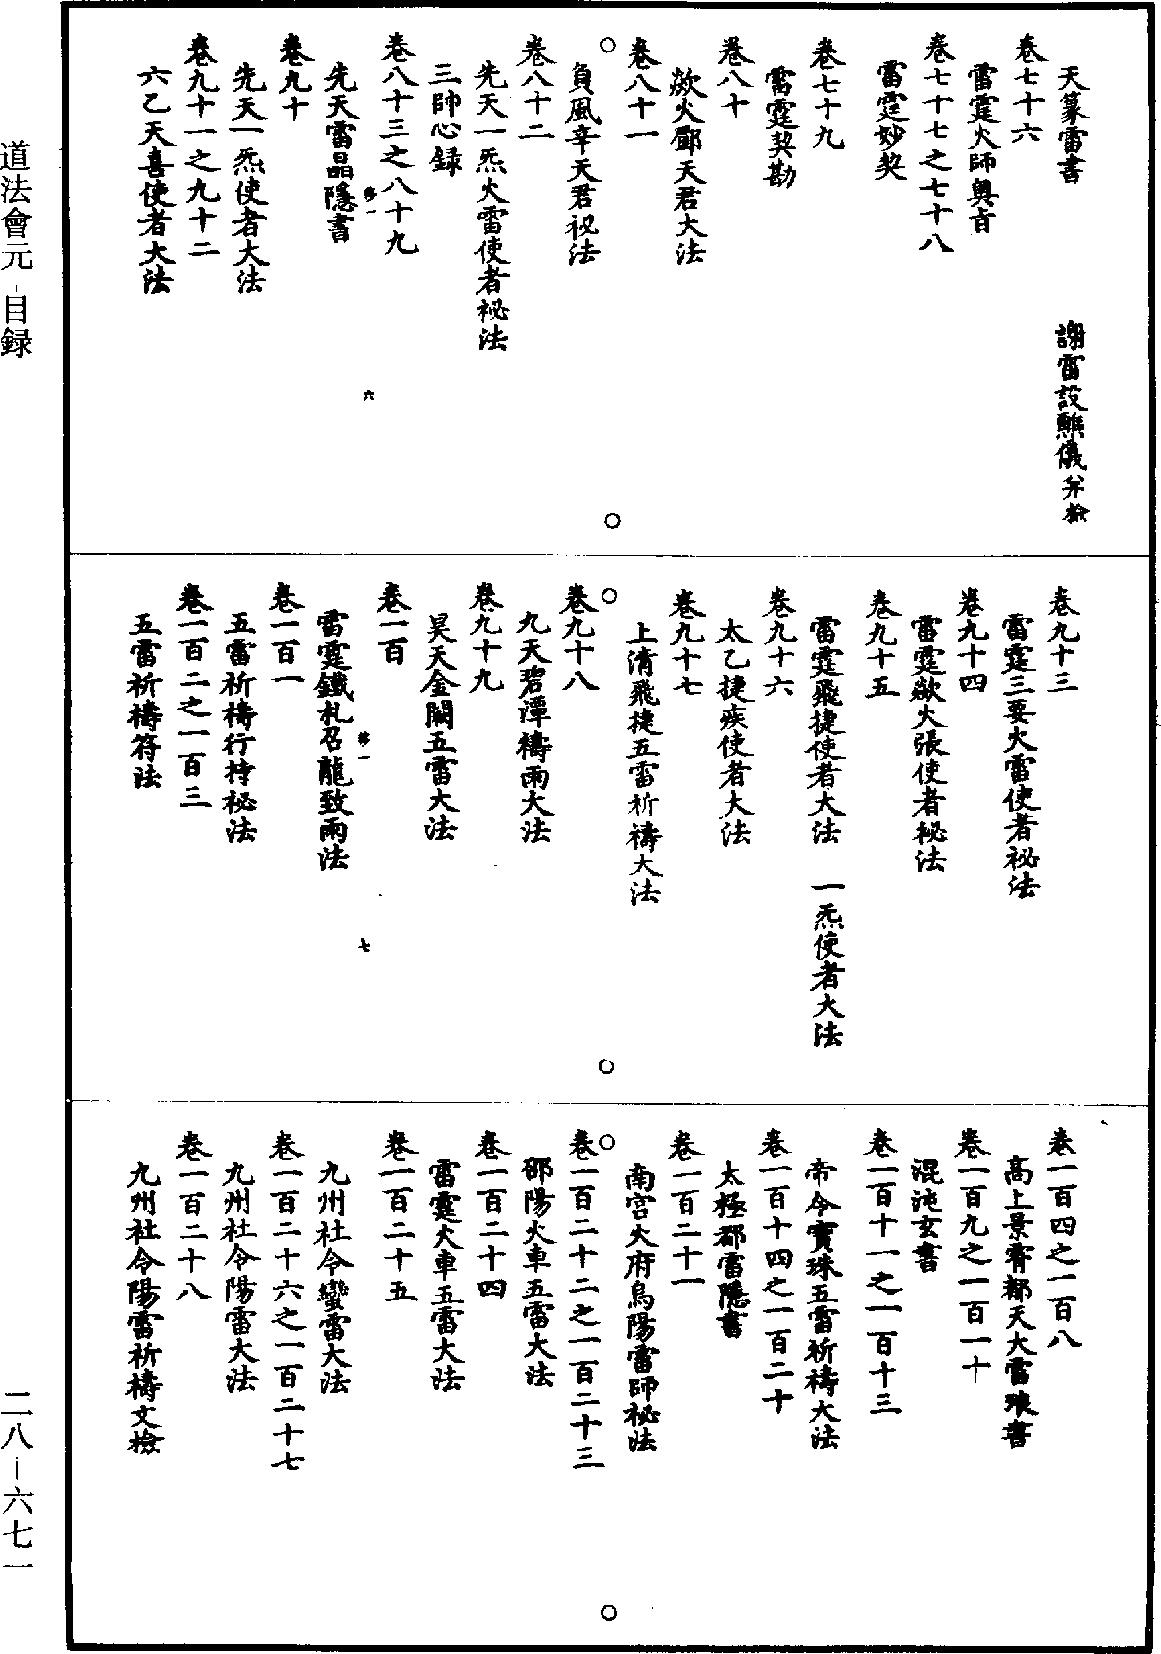 天篆雷書　謝雷設醮儀并檢
卷七十六
雷霆火師奧旨
卷七十七之七十八
雷霆妙契
卷七十九
雷霆契勘
卷八十
歘火鄧天君大法
卷八十一
負風辛天君祕法
卷八十二
先天一炁火雷使者祕法
三帥心録
卷八十三之八十九
先天雷晶隱書
卷九十
先天一炁使者大法
卷九十一之九十二
六乙天喜使者大法
六
卷九十三
雷霆三要火雷使者祕法
卷九十四
雷霆歘火張使者秘法
卷九十五
雷霆飛捷使者大法　一炁使者大法
卷九十六
太乙捷疾使者大法
卷九十七
上清飛捷五雷祈禱大法
卷九十八
九天碧潭禱雨大法
卷九十九
昊天金闕五雷大法
卷一百
雷霆鐵札召龍致雨法
卷一百一
五雷祈禱行持祕法
卷一百二之一百三
五雷祈禱符法
七
卷一百四之一百八
高上景霄都天大雷琅書
卷一百九之一百一十
混沌玄書
卷一百十一之一百十三
帝令寶珠五雷祈禱大法
卷一百十四之一百二十
太極都雷隱書
卷一百二十一
南宮火府烏陽雷師祕法
卷一百二十二之一百二十三
邵陽火車五雷大法
卷一百二十四
雷霆火車五雷大法
卷一百二十五
九州社令蠻雷大法
卷一百二十六之一百二十七
九州社令陽雷大法
卷一百二十八
九州社令陽雷祈禱文檢
道法會元－目録
二八－六七一